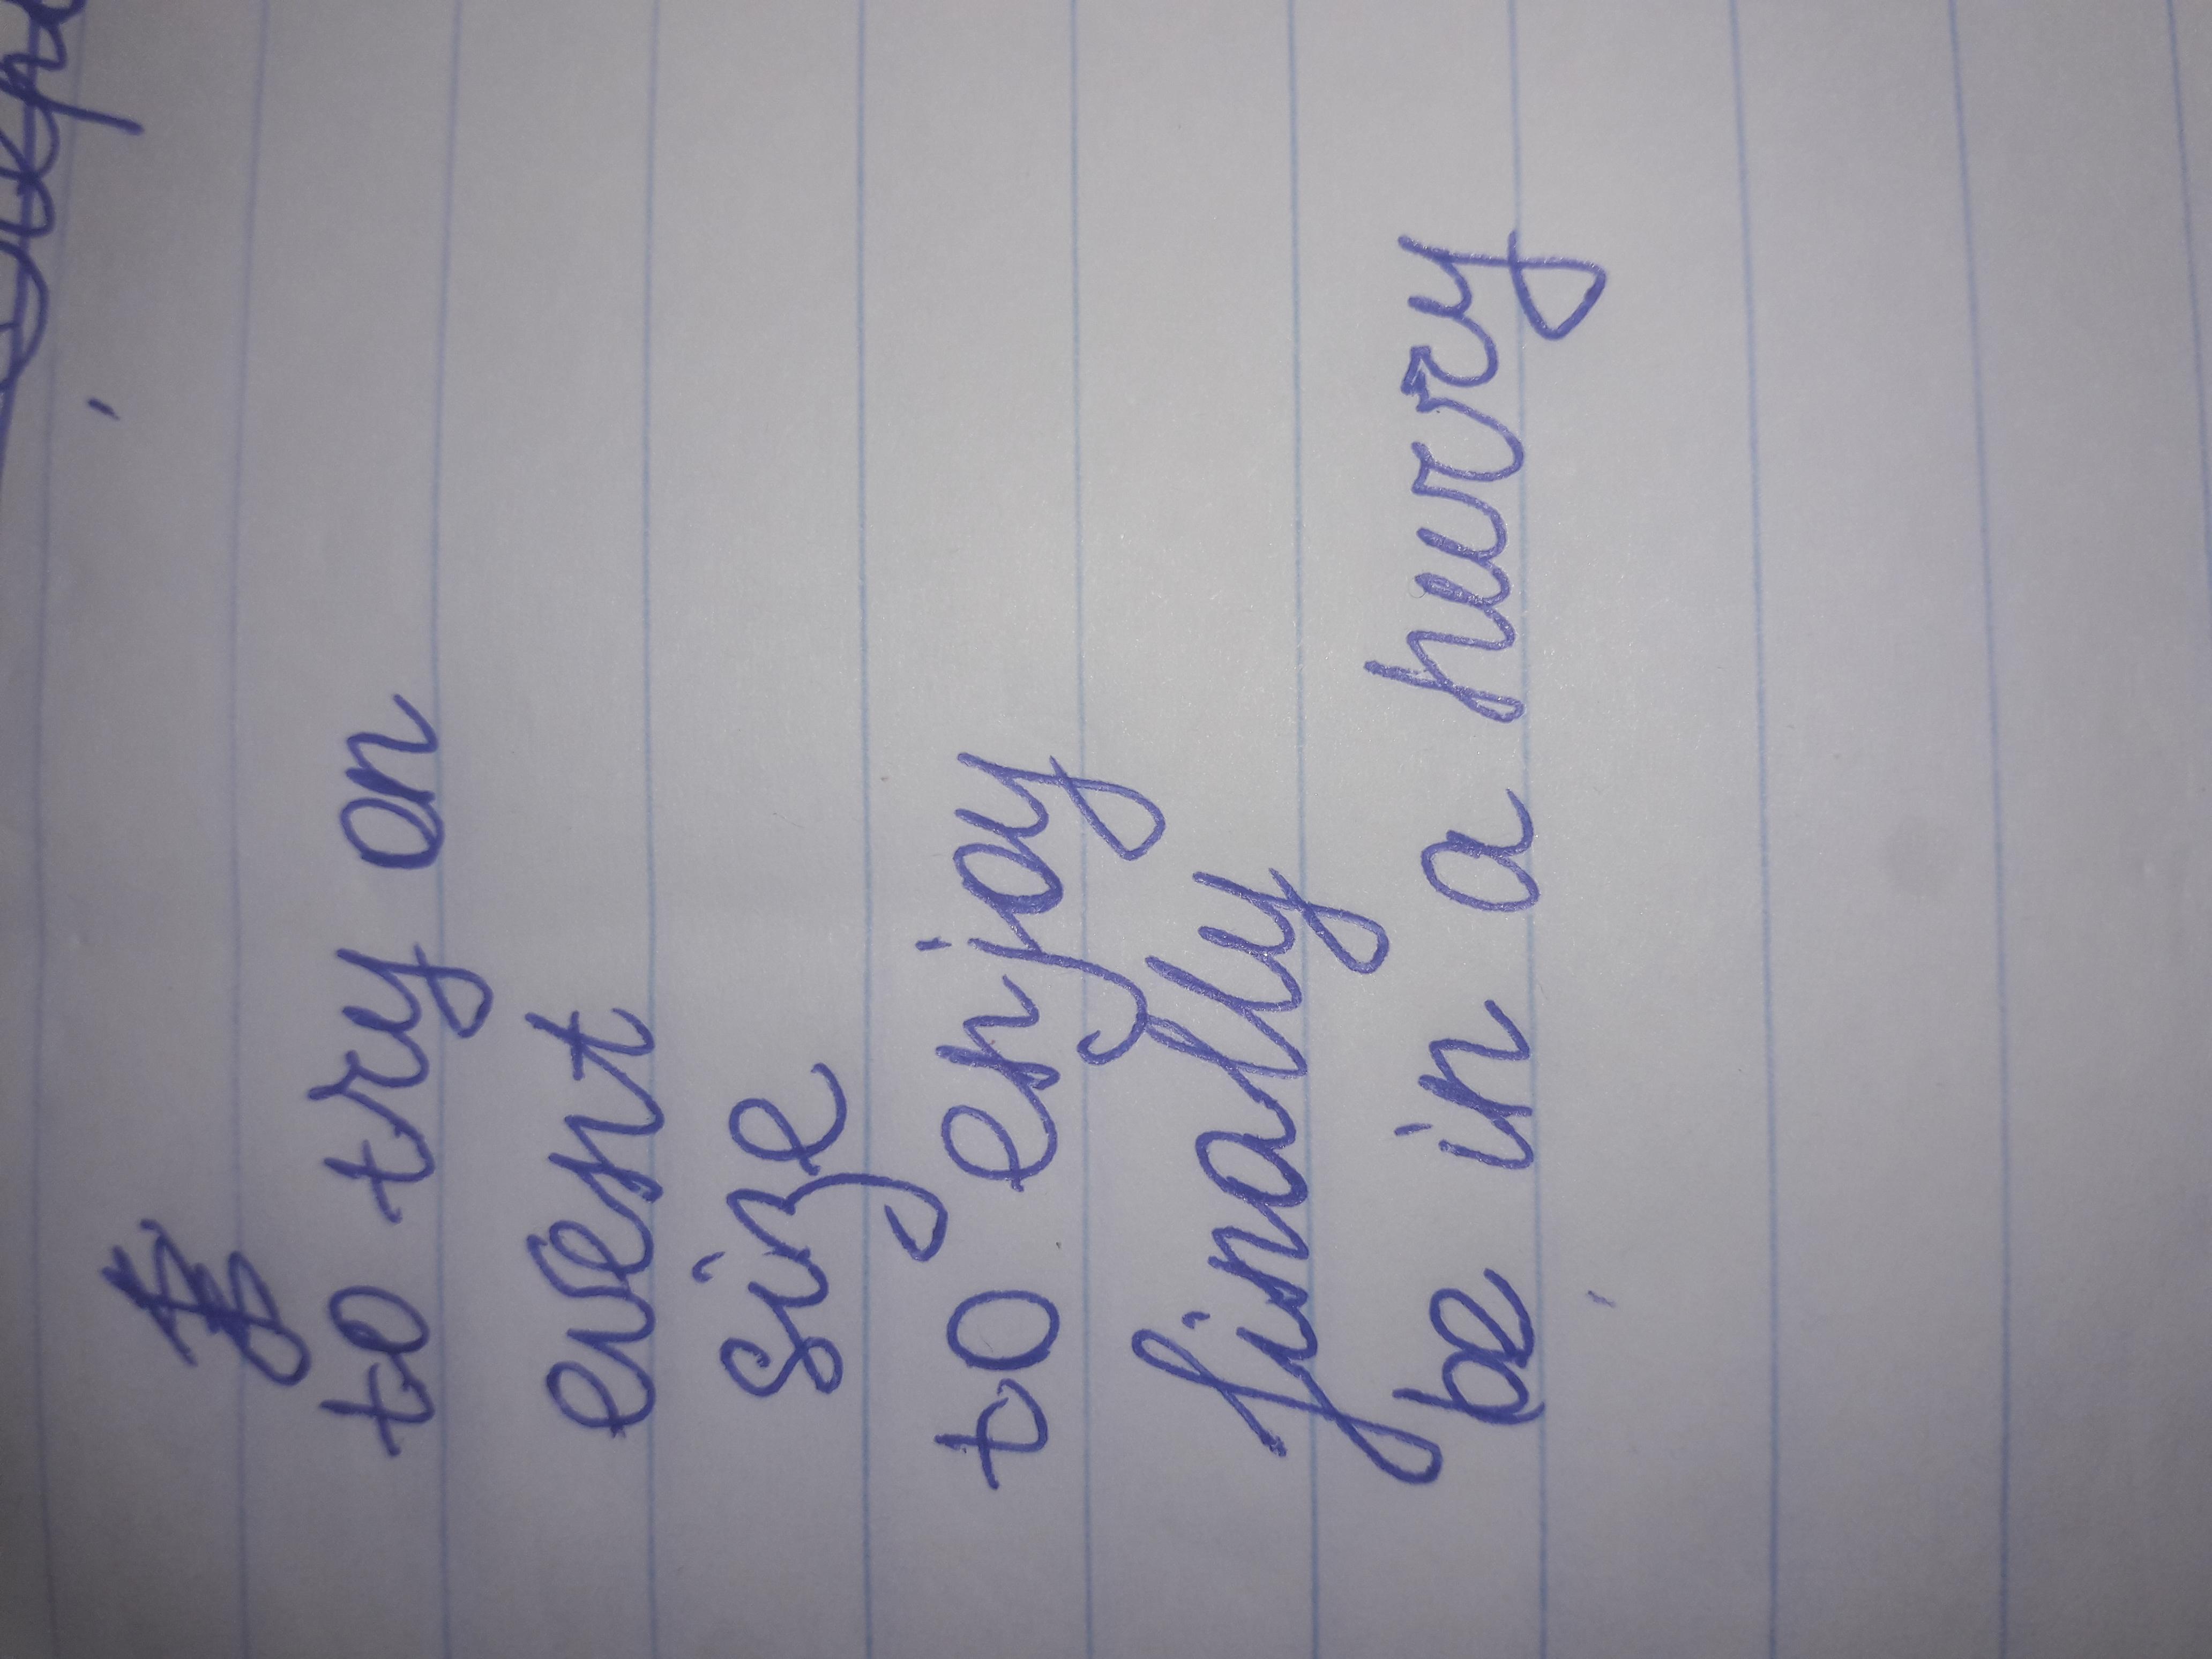 to try on
event
size
to enjoy
finally
be in a hurry